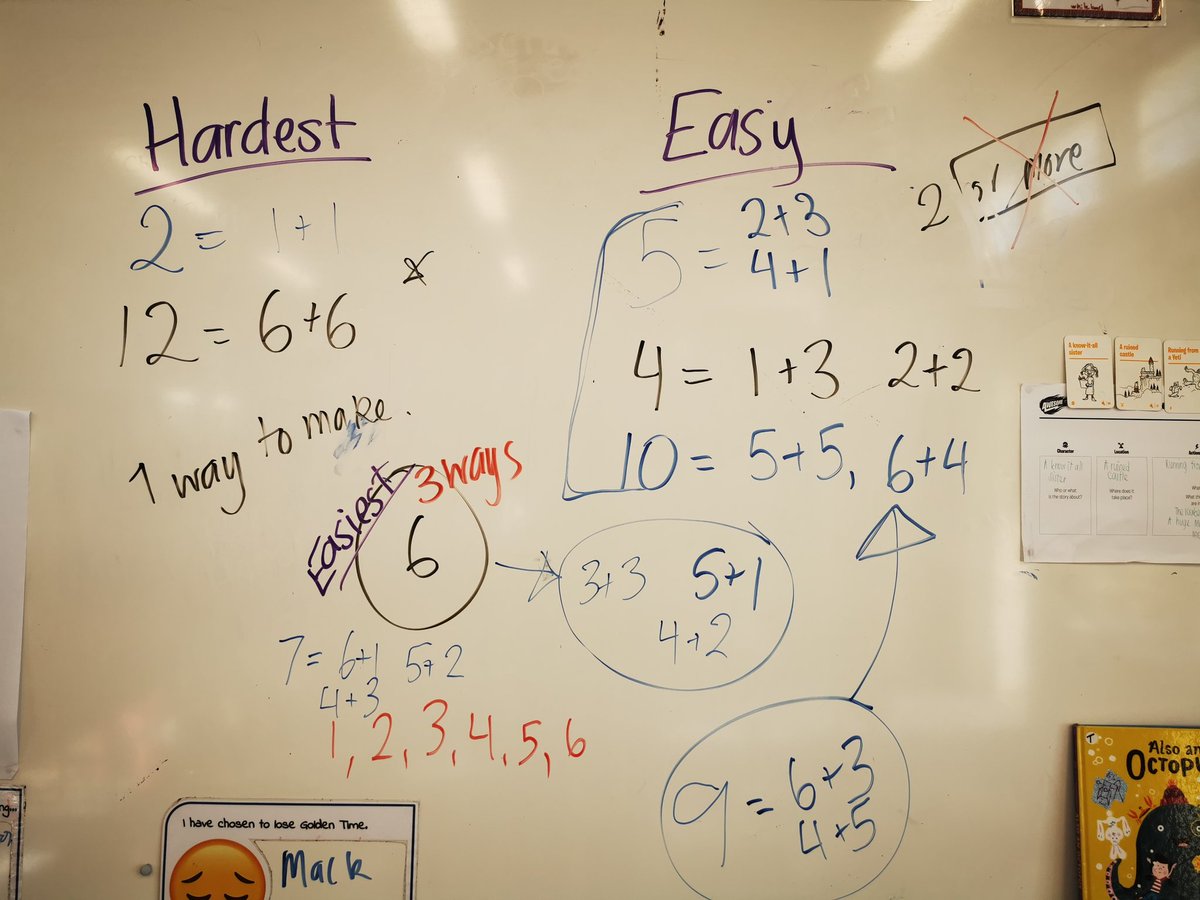 Hardest
2 = 1+1
12 = 6+6
1 way to make.
Easy
2 or more
5 = 2+3
4+1
4 = 1+3 2+2
10 = 5+5, 6+4
Easiest
3 ways
6
3+3 5+1
4+2
7 = 6+1 5+2
4+3
1, 2, 3, 4, 5, 6
9 = 6+3
4+5
A know-it-all
sister
A ruined
castle
Running from
a Yeti
AWESOME
Character
Location
A know it all
sister
Who or what
is the story about?
A ruined
castle
Where does it
take place?
I have chosen to lose Golden Time.
Mack
T
Also an
OCTOPU